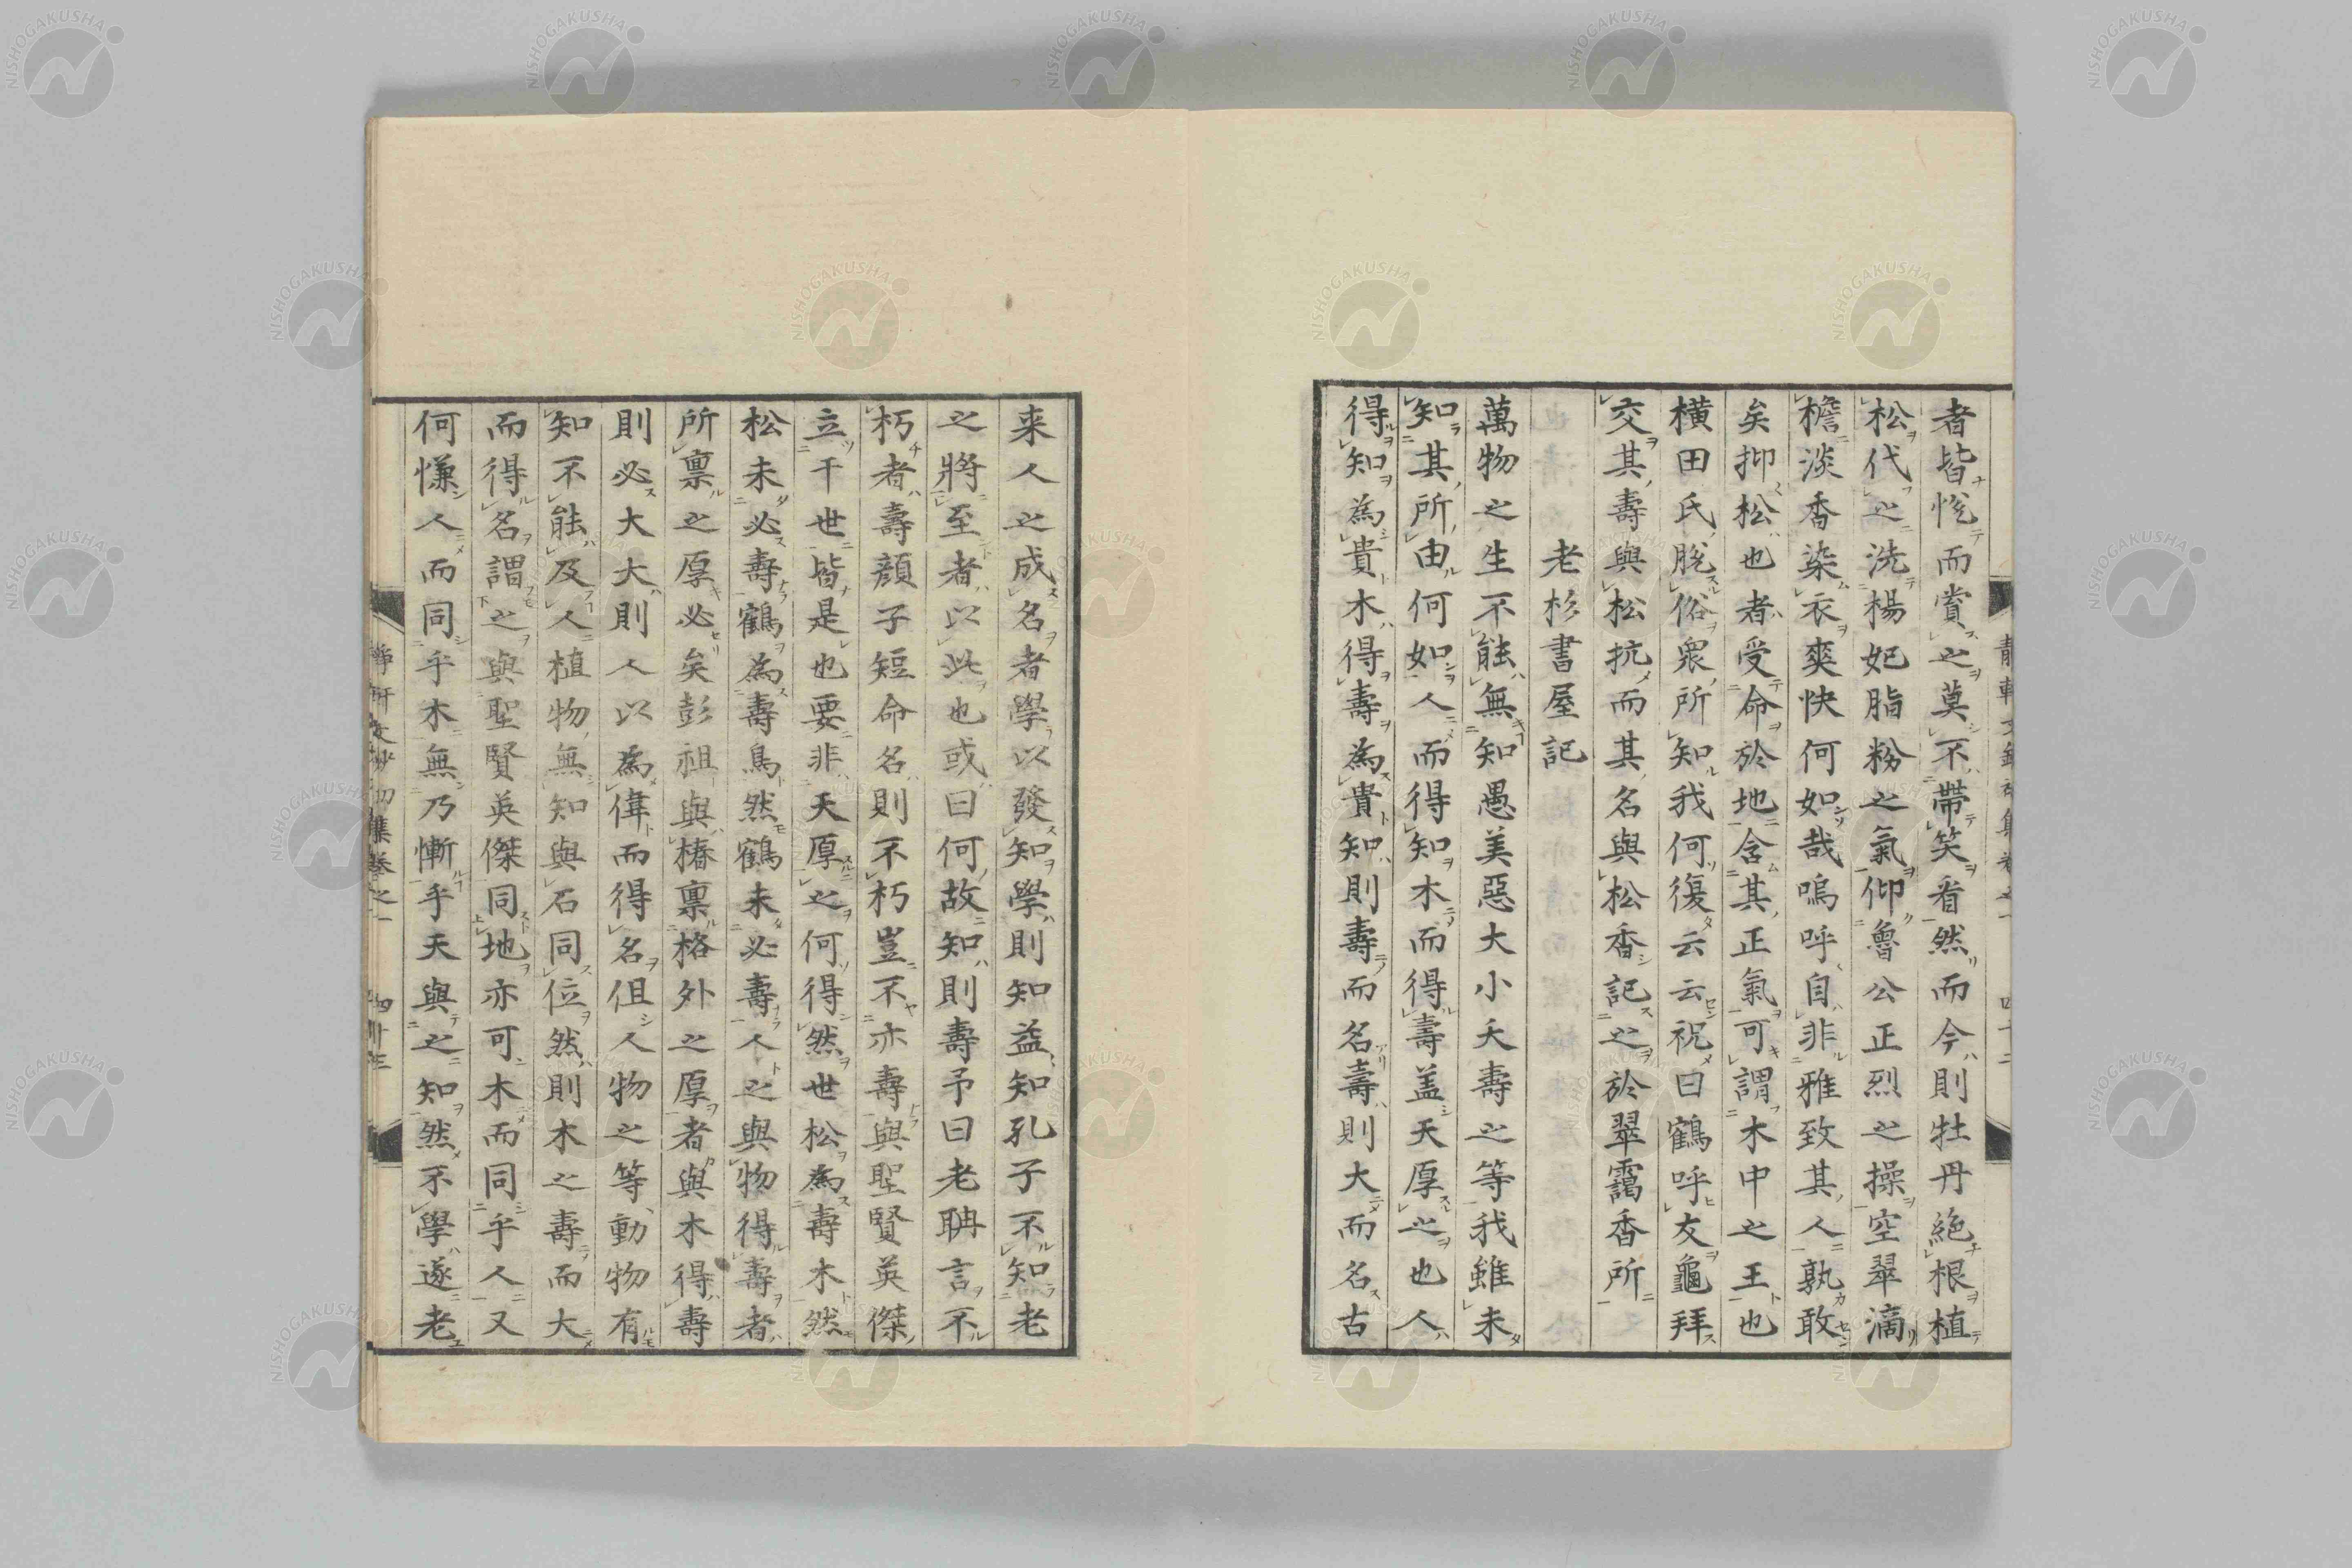 者皆悦而賞之莫不帶笑看然而今則牡丹絶根植
松代之洗楊妃脂粉之氣仰魯公正烈之操空翠滴
檐淡香染衣爽快何如哉嗚呼自非雅致其人孰敢
矣抑松也者受命於地含其正氣可謂木中之王也
横田氏脱俗衆所知我何復云云祝曰鶴呼友龜拜
交其壽與松抗而其名與松香記之於翠靄香所
老杉書屋記
萬物之生不能無知愚美惡大小夭壽之等我雖未
知其所由何如人而得知木而得壽盖天厚之也人
得知為貴木得壽為貴知則壽而名壽則大而名古
来人之成名者學以發知學則知益知孔子不知老
之將至者以此也或曰何故知則壽予曰老聃言不
朽者壽顔子短命名則不朽豈不亦壽與聖賢英傑
立千世皆是也要非天厚之何得然世松為壽木然
松未必壽鶴為壽鳥然鶴未必壽人之與物得壽者
所禀之厚必矣彭祖與椿禀格外之厚者與木得壽
則必大大則人以為偉而得名但人物之等動物有
知不能及人植物無知與石同位然則木之壽而大
而得名謂之與聖賢英傑同地亦可木而同乎人又
何慊人而同乎木無乃慚乎天與之知然不學遂老
靜軒文鈔初集卷之一 四十二
靜軒文鈔初集卷之一 四十三